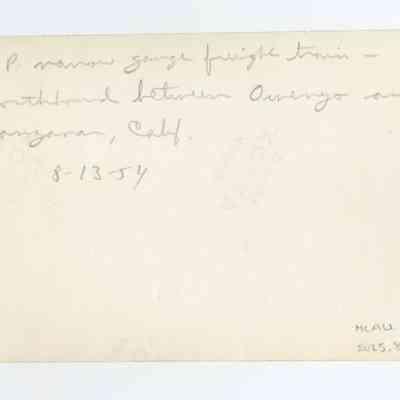 P. narrow gauge freight train –
orthbound between Owenyo an
anzanar, Calif.
8-13-54
McALL
2025.8